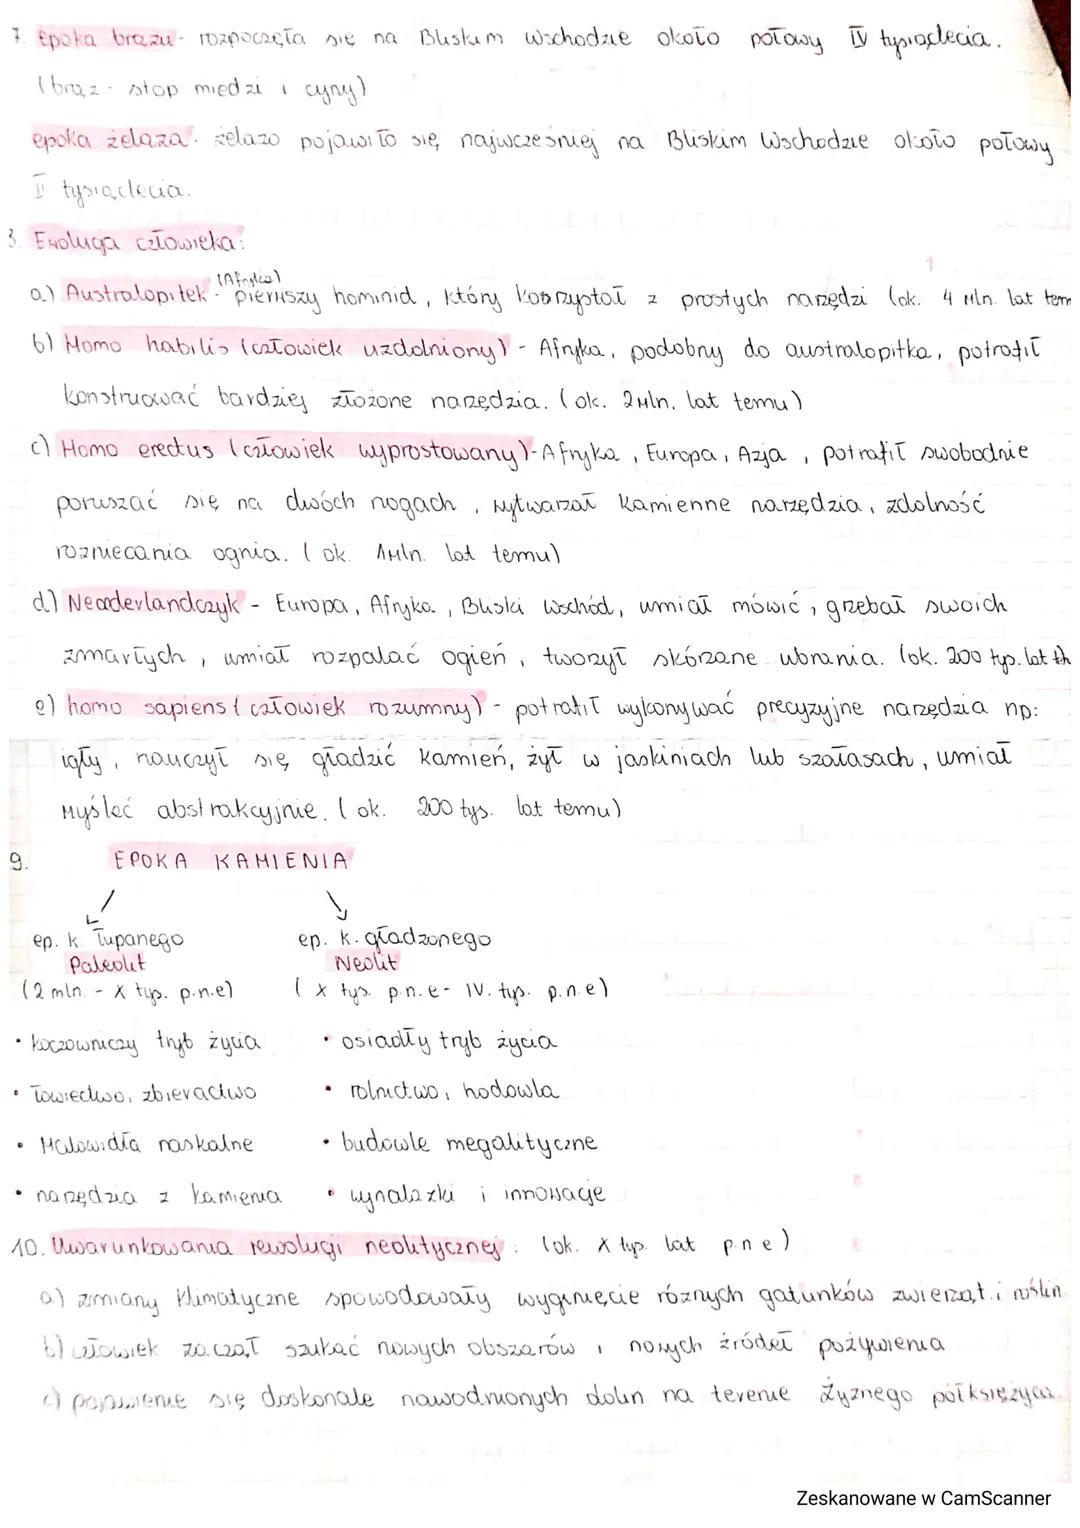 7. Epoka brązu - rozpoczęła się na Bliskim Wschodzie około połowy IV tysiąclecia.
(brąz - stop miedzi i cyny)
epoka żelaza - żelazo pojawiło się najwcześniej na Bliskim Wschodzie około połowy
II tysiąclecia.
8. Ewolucja człowieka:
(Afryka)
a) Australopitek - pierwszy hominid, który korzystał z prostych narzędzi (ok. 4 mln. lat tem
b) Homo habilis (człowiek uzdolniony) - Afryka, podobny do australopitka, potrafił
konstruować bardziej złożone narzędzia. (ok. 2 mln. lat temu)
c) Homo erectus (człowiek wyprostowany) - Afryka, Europa, Azja, potrafił swobodnie
poruszać się na dwóch nogach, wytwarzał kamienne narzędzia, zdolność
rozniecania ognia. (ok. 1 mln. lat temu)
d) Neaderlandczyk - Europa, Afryka, Bliski Wschód, umiał mówić, grzebał swoich
zmarłych, umiał rozpalać ogień, tworzył skórzane ubrania. (ok. 200 tys. lat
e) homo sapiens (człowiek rozumny) - potrafił wykonywać precyzyjne narzędzia np:
igły, nauczył się gładzić kamień, żył w jaskiniach lub szałasach, umiał
myśleć abstrakcyjnie. (ok. 200 tys. lat temu)
9. EPOKA KAMIENIA
ep. k. łupanego ep. k. gładzonego
Paleolit Neolit
(2 mln. - X tys. p.n.e) (X tys. p.n.e - IV. tys. p.n.e)
• koczowniczy tryb życia • osiadły tryb życia
• łowiectwo, zbieractwo • rolnictwo, hodowla
• Malowidła naskalne • budowle megalityczne
• narzędzia z kamienia • wynalazki i innowacje
10. Uwarunkowania rewolucji neolitycznej: (ok. X tys. lat p.n.e)
a) zmiany klimatyczne spowodowały wyginięcie różnych gatunków zwierząt i roślin
b) człowiek zaczął szukać nowych obszarów i nowych źródeł pożywienia
c) pojawienie się doskonale nawodnionych dolin na terenie Żyznego półksiężyca.
Zeskanowane w CamScanner